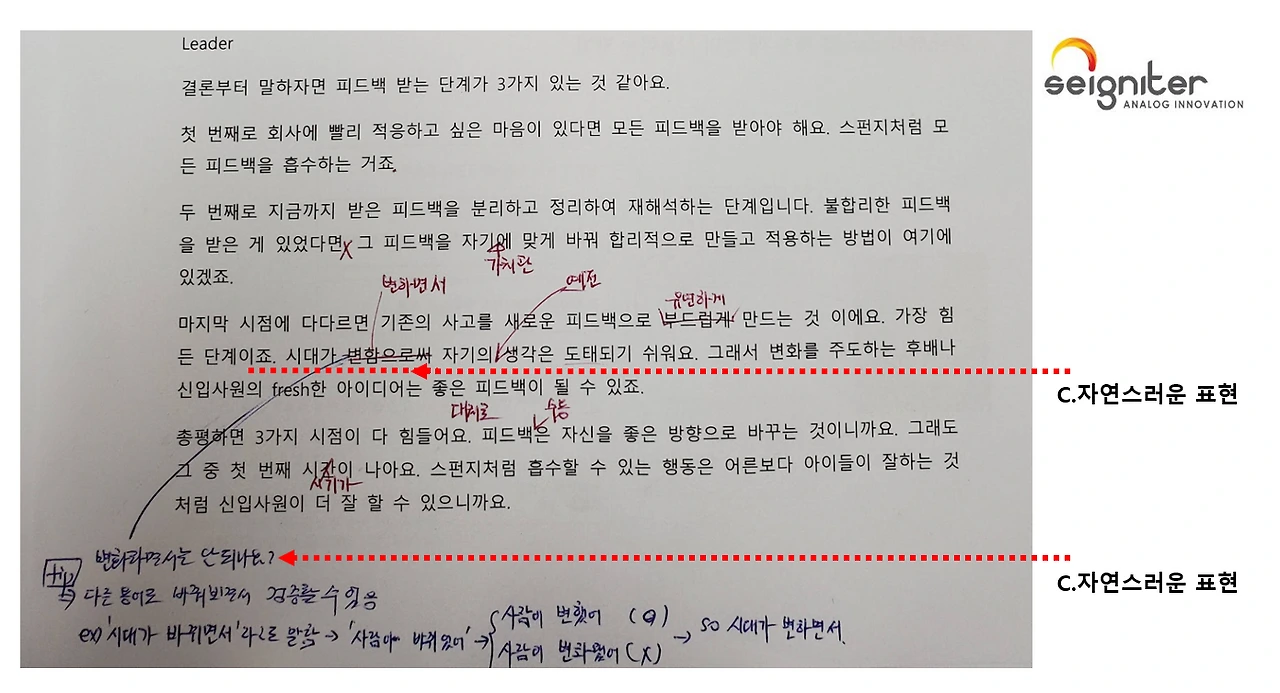 Leader
결론부터 말하자면 피드백 받는 단계가 3가지 있는 것 같아요.
첫 번째로 회사에 빨리 적응하고 싶은 마음이 있다면 모든 피드백을 받아야 해요. 스펀지처럼 모
든 피드백을 흡수하는 거죠.
두 번째로 지금까지 받은 피드백을 분리하고 정리하여 재해석하는 단계입니다. 불합리한 피드백
을 받은 게 있었다면 그 피드백을 자기에 맞게 바꿔 합리적으로 만들고 적용하는 방법이 여기에
가치관
있겠죠.
변하면서
예전
유연하게
마지막 시점에 다다르면 기존의 사고를 새로운 피드백으로 부드럽게 만드는 것 이에요. 가장 힘
든 단계이죠. 시대가 변함으로써 자기의 생각은 도태되기 쉬워요. 그래서 변화를 주도하는 후배나
신입사원의 fresh한 아이디어는 좋은 피드백이 될 수 있죠.
대체로
수동
총평하면 3가지 시점이 다 힘들어요. 피드백은 자신을 좋은 방향으로 바꾸는 것이니까요. 그래도
그 중 첫 번째 시각이 나아요. 스펀지처럼 흡수할 수 있는 행동은 어른보다 아이들이 잘하는 것
시기가
처럼 신입사원이 더 잘 할 수 있으니까요.
변화하면서는 안되나요?
tip
다른 용어로 바꿔보면서 검증할 수 있음
ex) '시대가 바뀌면서'라고로 말함 → '사람이 바뀌었어' →
사람이 변했어 (O)
사람이 변화했어 (X)
→ so 시대가 변하면서.
seigniter
ANALOG INNOVATION
C.자연스러운 표현
C.자연스러운 표현